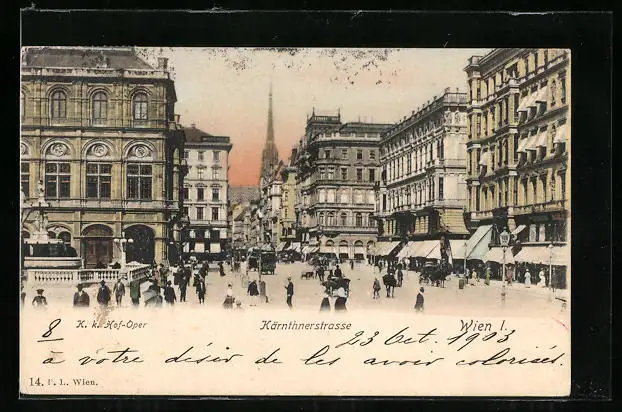 8 K. k. Hof-Oper Kärnthnerstrasse 23 Oct. 1903 Wien I.
à votre désir de les avoir coloriés.
14. P. L. Wien.